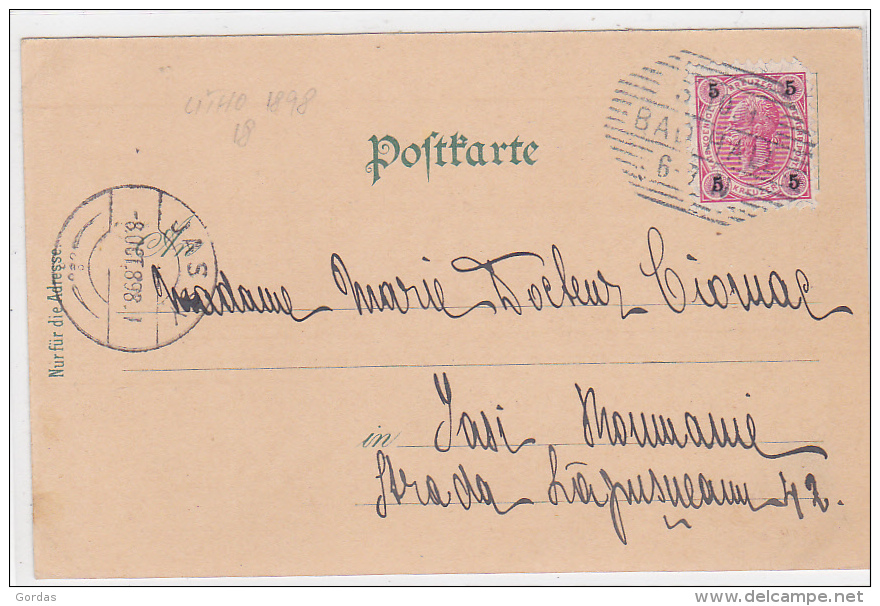 LITHO 1898
18
Postkarte
5 KREUZER 5
BAD
6-
5 KREUZER 5
JASSY
-8.OCT.898
Nur für die Adresse.
Madame Marie Docteur Ciornac
in Jasi Roumanie
Strada Lăpușneanu 42.
Gordas
www.delcampe.net